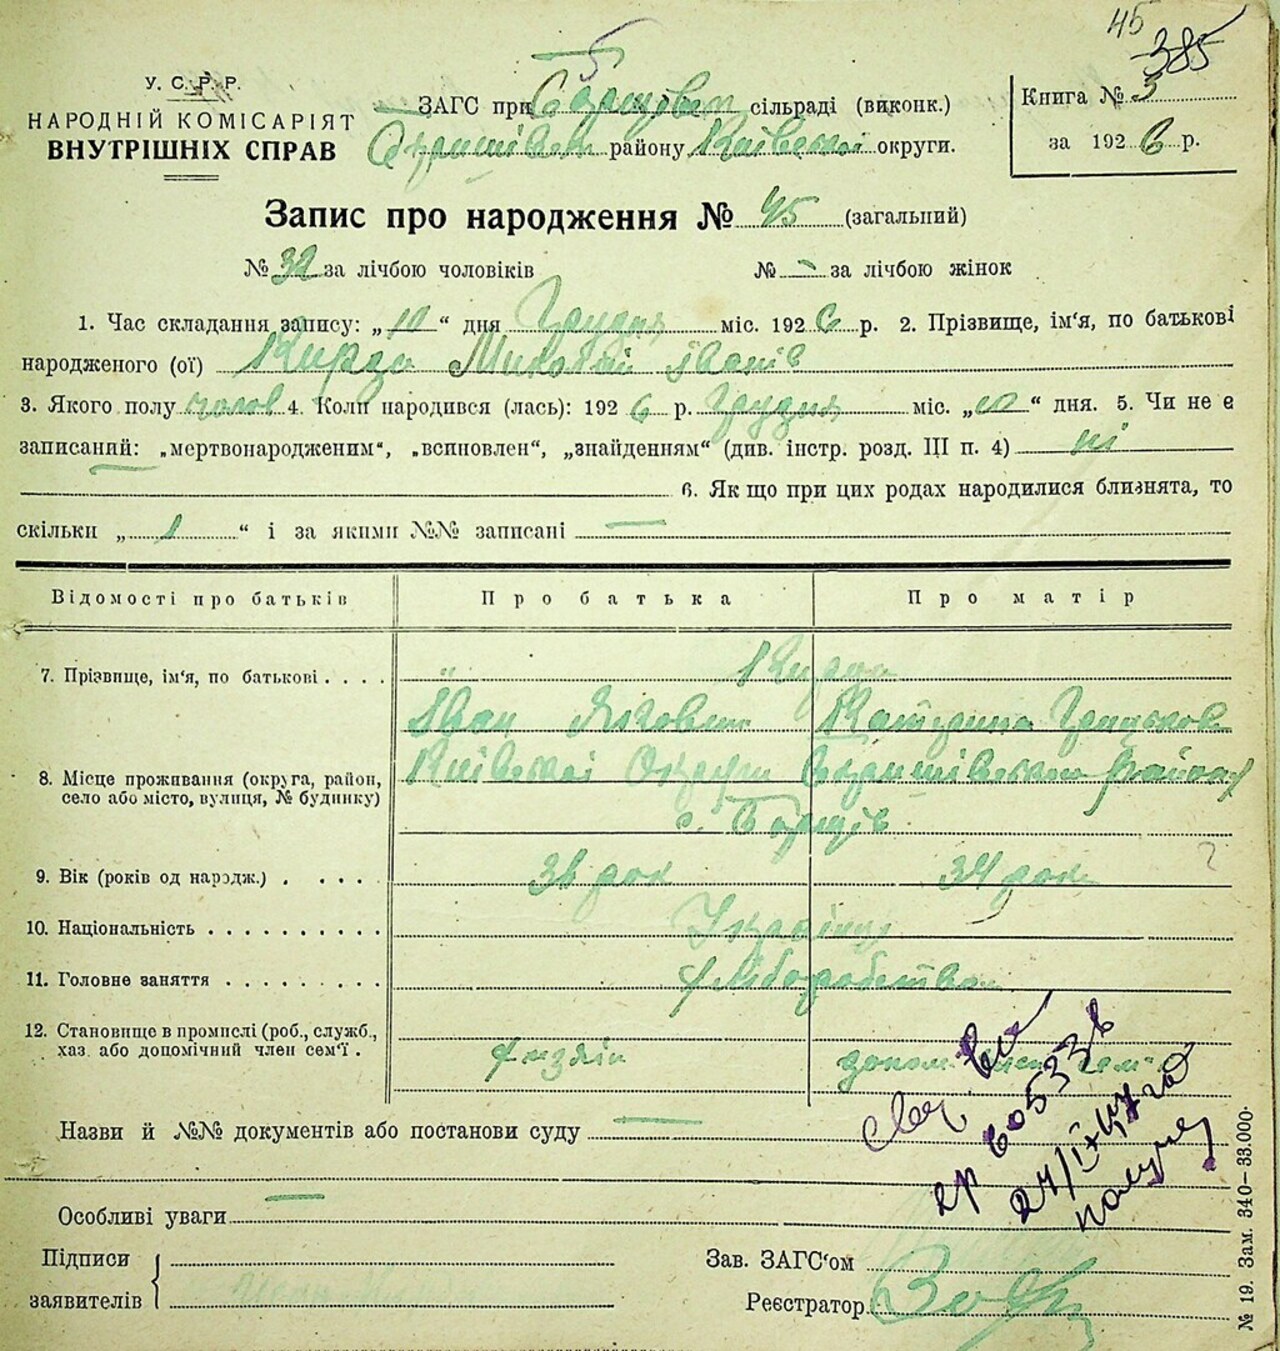 45
385
У. С. Р. Р.
НАРОДНІЙ КОМІСАРІЯТ
ВНУТРІШНІХ СПРАВ
ЗАГС при сільраді (виконк.)
району Київської округи.
Книга № 3
за 1926 р.
Запис про народження № 45 (загальний)
№ 32 за лічбою чоловіків № - за лічбою жінок
1. Час складання запису: „10“ дня Грудня міс. 1926 р. 2. Прізвище, ім'я, по батькові
народженого (ої) Кирда Миколай Іванів
3. Якого полу чолов 4. Коли народився (лась): 1926 р. Грудня міс. „10“ дня. 5. Чи не є
записаний: „мертвонародженим“, „всиновлен“, „знайденням“ (див. інстр. розд. III п. 4) ні
6. Як що при цих родах народилися близнята, то
скільки „1“ і за якими №№ записані —
Відомості про батьків Про батька Про матір
7. Прізвище, ім'я, по батькові . . . . Кирда
Іван Катерина
8. Місце проживання (округа, район, Київської Округи району
село або місто, вулиця, № будинку) с. Борщів
9. Вік (років од нарэдж.) . . . . . рок 34 рок
10. Національність . . . . . . . . . . Українці
11. Головне заняття . . . . . . . . . Хліборобство
12. Становище в промислі (роб., служб.,
хаз. або допомічний член сем'ї . Хазяїн допом. член сем.
Назви й №№ документів або постанови суду —
Особливі уваги —
Підписи
заявителів
Зав. ЗАГС'ом
Реєстратор
№ 19. Зам. 340—33.000.